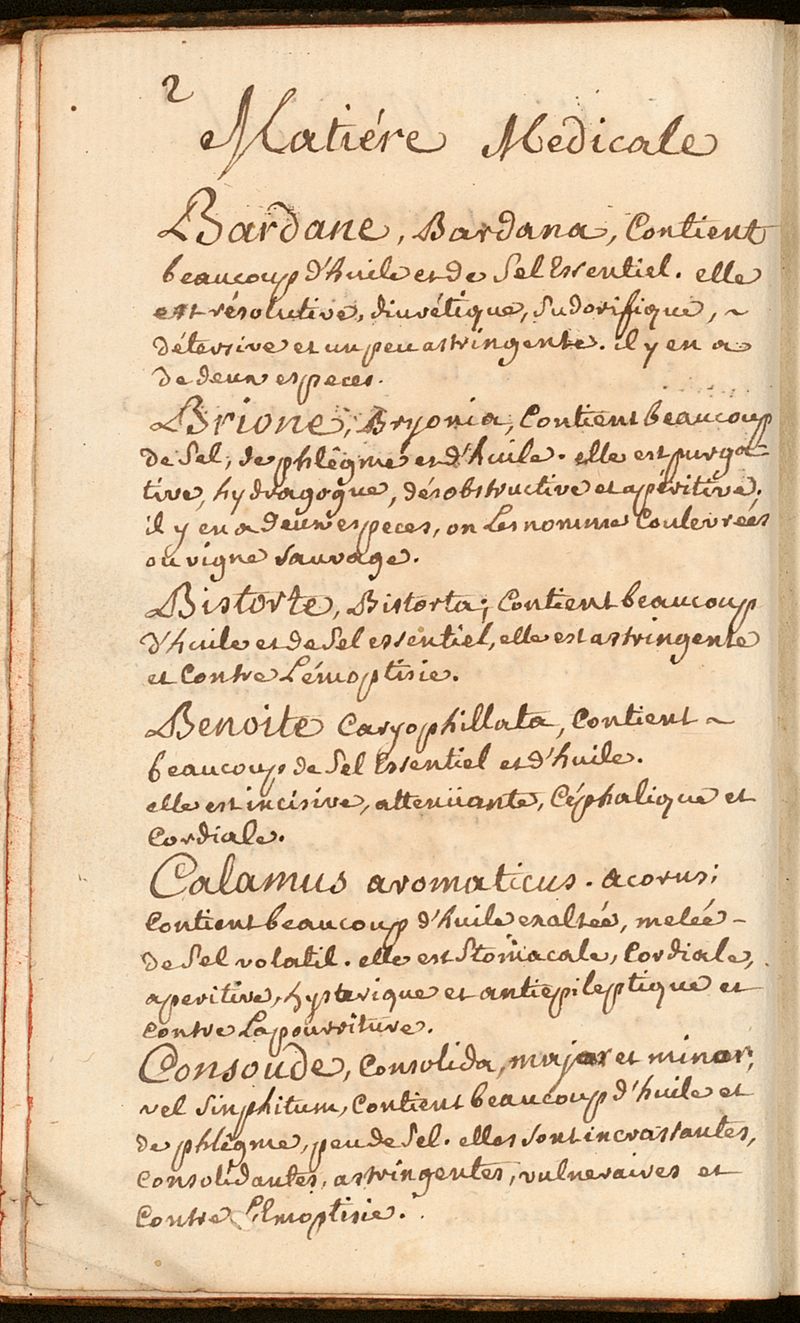 2
Matiére Medicale
Bardane, Bardana, Contient
beaucoup d'huile et de Sel Essentiel. elle
est résolutive, diurétique, Sudorifique, ~
détersive et un peu astringente. il y en a
de deux especes.
Brione, Bryonia, Contient beaucoup
de Sel, de phlêgme et d'huile. elle est purga-
tive, hydragogue, désobstructive et apéritive.
il y en a deux especes, on Les nomme Couleuvreés
ou vigne sauvage.
Bistorte, Bistorta; Contient beaucoup
d'huile et de Sel essentiel, elle est astringente
et Contre L'émoptisie.
Benoite Caryophillata, Contient ~
beaucoup de Sel Essentiel et d'huile.
elle est incisive, attenüante, Céphalique et
Cordiale.
Calamus aromaticus. acorus;
Contient beaucoup d'huile exaltée, melée -
de Sel volatil. elle est Stomacale, Cordiale,
aperitive, hysterique et antiepileptique et
Contre La pourriture.
Consoude, Consolida, major et minor;
vel Sinphitum, Contient beaucoup d'huile et
de phlêgme, peu de Sel. elles sont incrassantes,
Consolidantes, astringentes, vulneraires et
Contre L'Emoptisie.